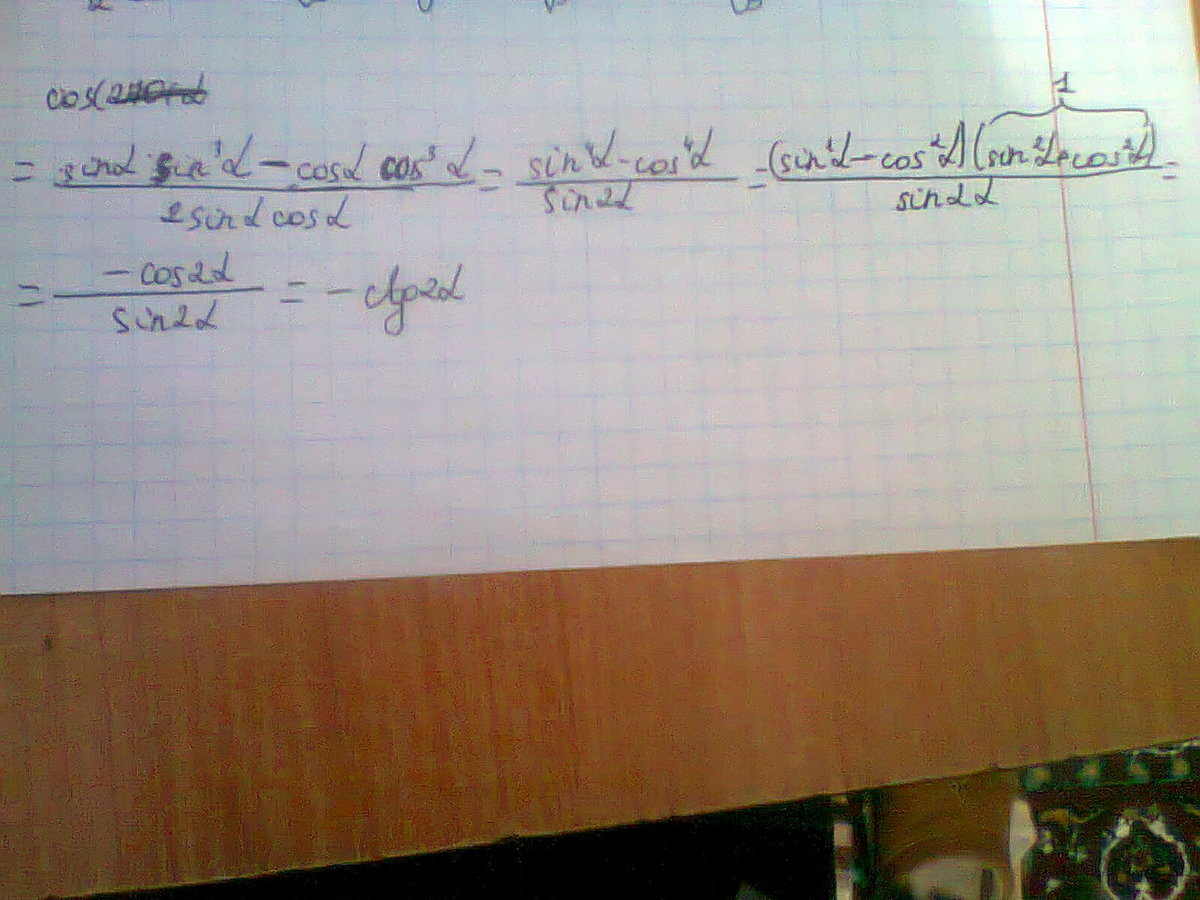 cos(270+α
1
= sinα sin³α - cosα cos³α / 2sinα cosα = sin⁴α - cos⁴α / sin2α = (sin²α - cos²α)(sin²α + cos²α) / sin2α =
= -cos2α / sin2α = -ctg2α